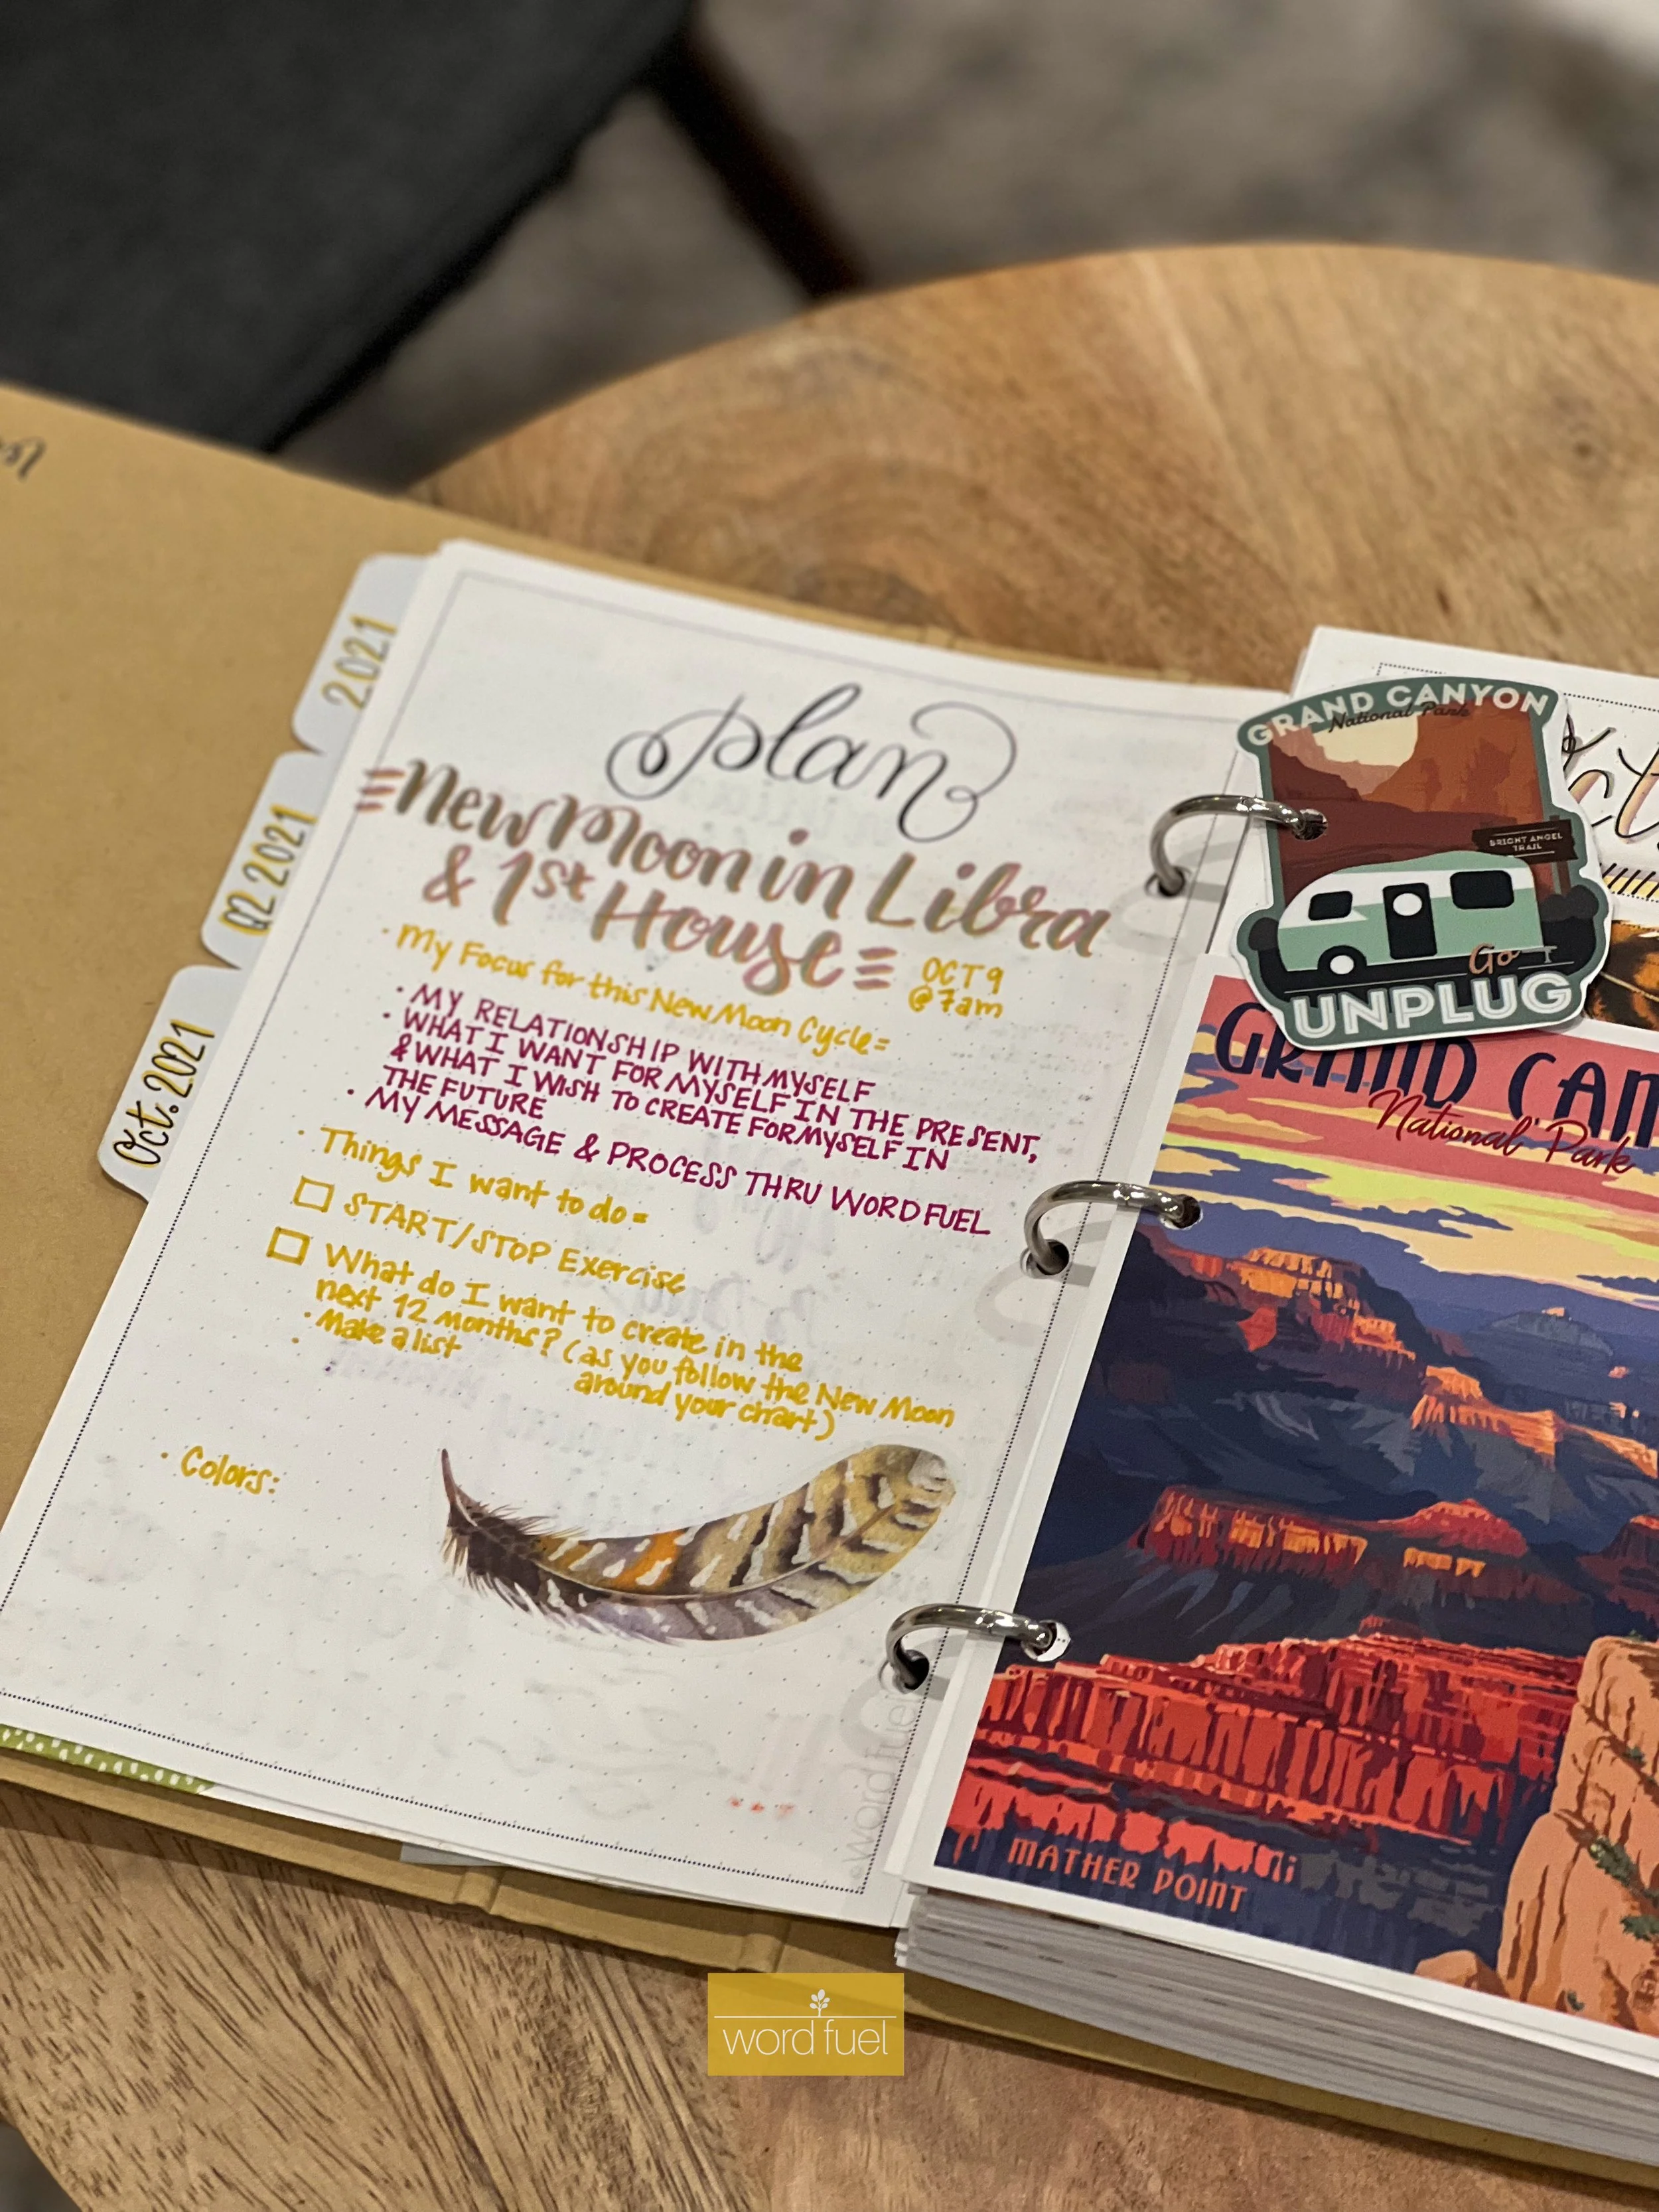 2021
Q2 2021
Oct. 2021
plan
New Moon in Libra
& 1st House
OCT 9
@ 7am
· My Focus for this New Moon Cycle =
· MY RELATIONSHIP WITH MYSELF
· WHAT I WANT FOR MYSELF IN THE PRESENT,
& WHAT I WISH TO CREATE FOR MYSELF IN
THE FUTURE
· MY MESSAGE & PROCESS THRU WORD FUEL
· Things I want to do =
START/STOP Exercise
What do I want to create in the
next 12 months? (as you follow the New Moon
around your chart)
· Make a list
·
· Colors:
©wordfuel
GRAND CANYON
National Park
BRIGHT ANGEL
TRAIL
Go
UNPLUG
GRAND CAN
National Park
MATHER POINT
word fuel